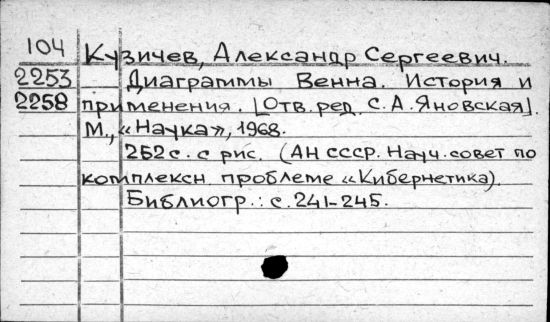 104 Кузичев, Александр Сергеевич.
2253 Диаграммы Венна. История и
2258 применения. [Отв. ред. С. А. Яновская].
М., «Наука», 1968.
252 с. с рис. (АН СССР. Науч. совет по
комплексн. проблеме «Кибернетика).
Библиогр.: с. 241-245.